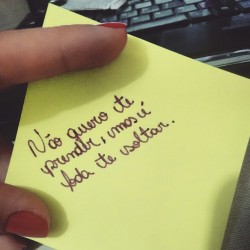 Não quero te
prender, mas é
foda te soltar.